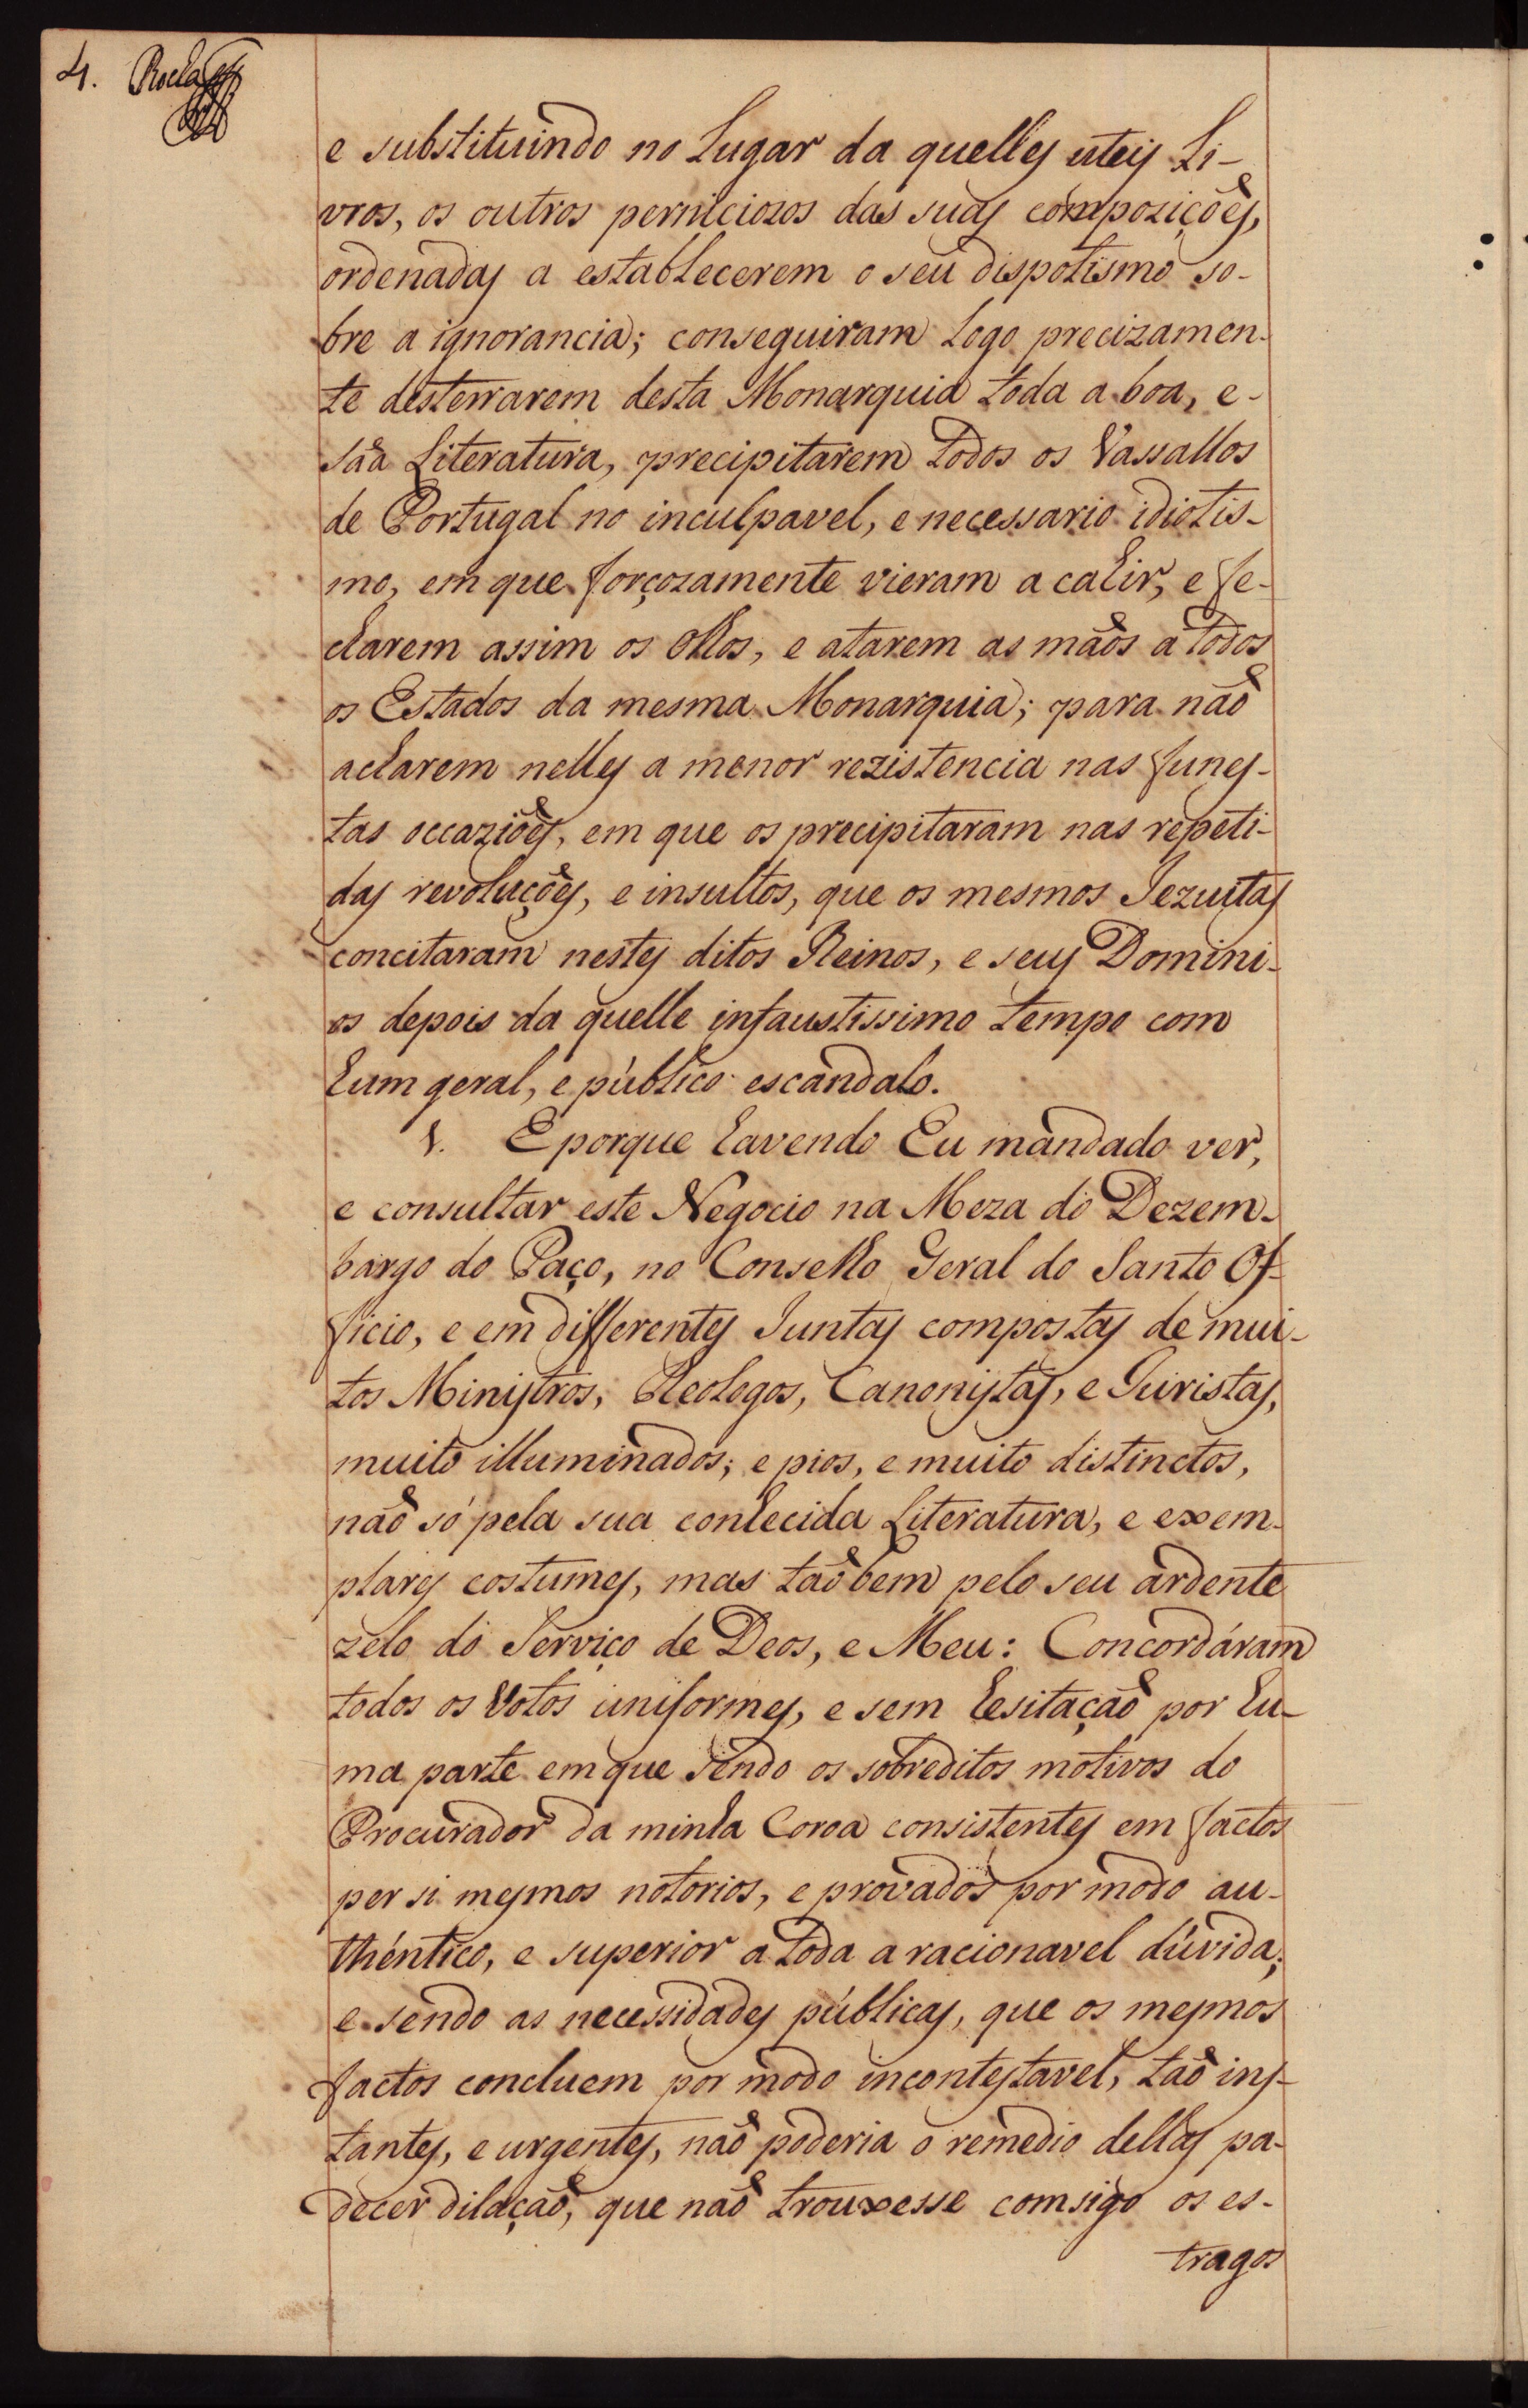 4. Rocha
e substituindo no Lugar da quelles uteis Li-
vros, os outros perniciozos das suas compoziçoẽs,
ordenadas a estabelecerem o seu dispotismo so-
bre a ignorancia; conseguiram Logo precizamen-
te desterrarem desta Monarquia toda a boa, e-
sãa Literatura, precipitarem todos os Vassallos
de Portugal no inculpavel, e necessario idiotis-
mo, em que forçozamente vieram a cahir, e fe-
charem assim os olhos, e atarem as mãos a todos
os Estados da mesma Monarquia; para não
acharem nelles a menor rezistencia nas funes-
tas occaziões, em que os precipitaram nas repeti-
das revoluções, e insultos, que os mesmos Jezuitas
concitaram nestes ditos Reinos, e seus Domini-
os depois da quelle infaustissimo tempo com
hum geral, e público escandalo.
§. E porque havendo Eu mandado ver,
e consultar este Negocio na Meza do Dezem-
bargo do Paço, no Conselho Geral do Santo Of-
ficio, e em differentes Juntas compostas de mui-
tos Ministros, Theologos, Canonistas, e Juristas,
muito illuminados; e pios, e muito distinctos,
não só pela sua conhecida Literatura, e exem-
plares costumes, mas tãobem pelo seu ardente
zelo do Serviço de Deos, e Meu: Concordáram
todos os Votos uniformes, e sem hesitação por hu-
ma parte em que sendo os sobreditos motivos do
Procurador da minha Coroa consistentes em factos
per si mesmos notorios, e provados por modo au-
théntico, e superior a toda a racionavel dúvida;
e sendo as necessidades públicas, que os mesmos
factos concluem por modo incontestavel, tão ins-
tantes, e urgentes, não poderia o remedio dellas pa-
decer dilação, que não trouxesse comsigo os es-
tragos